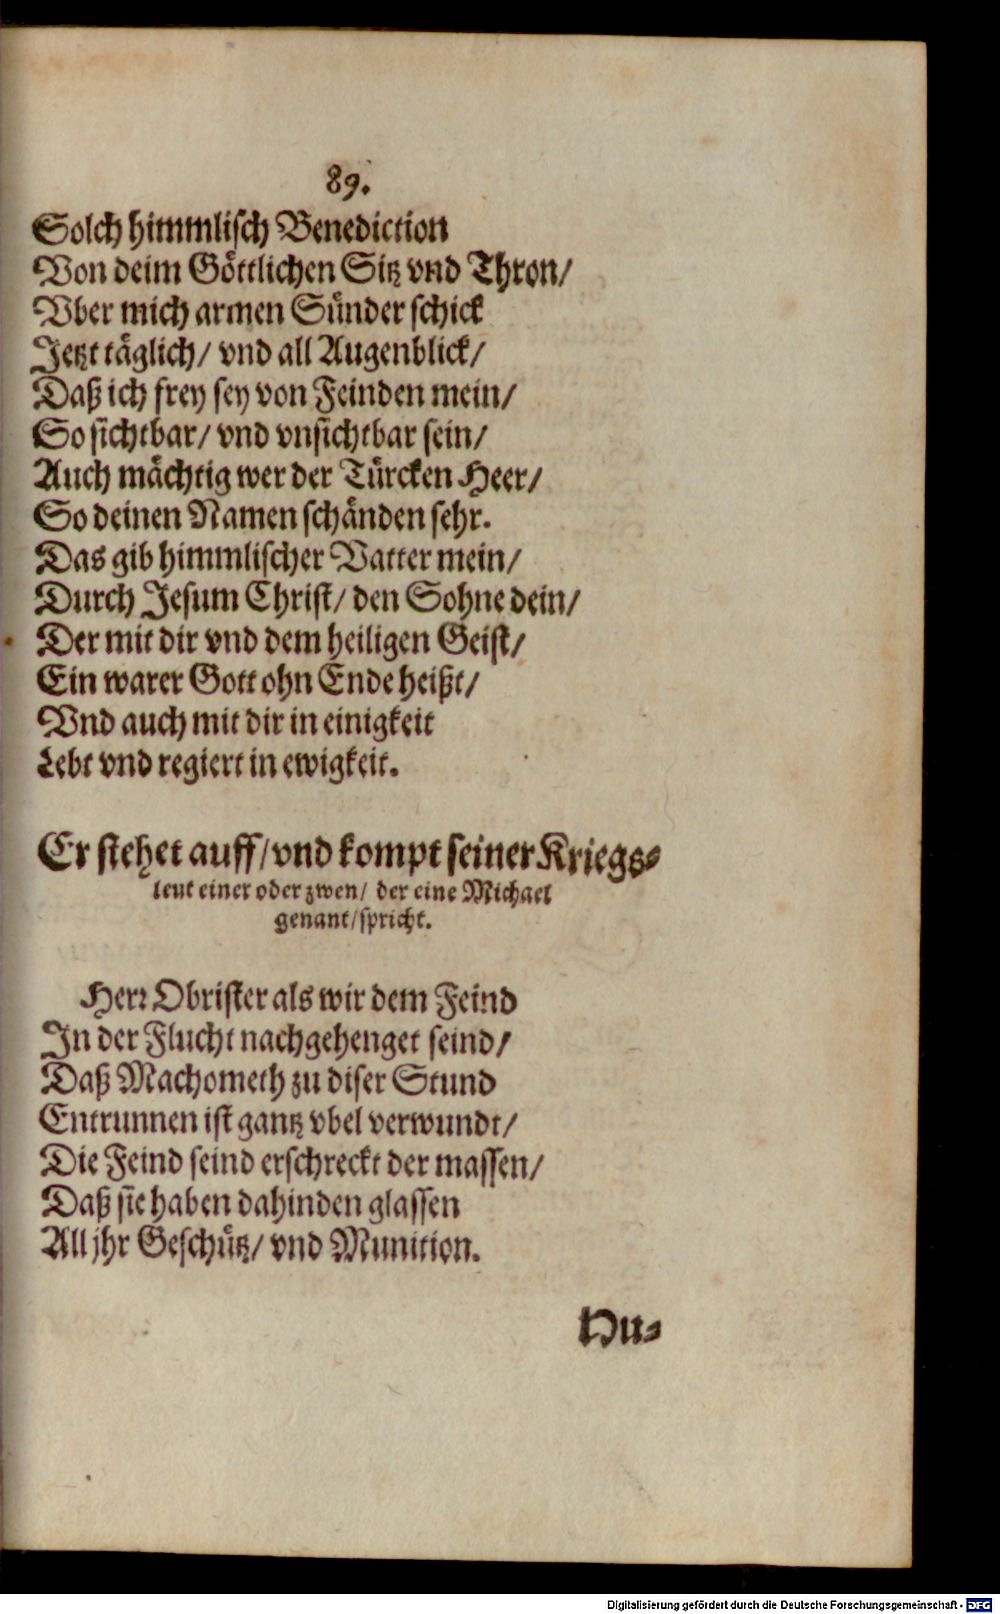 89.
Solch himmlisch Benediction
Von deim Göttlichen Sitz vnd Thron/
Vber mich armen Sünder schick
Jetzt täglich/ vnd all Augenblick/
Daß ich frey sey von Feinden mein/
So sichtbar/ vnd vnsichtbar sein/
Auch mächtig wer der Türcken Heer/
So deinen Namen schänden sehr.
Das gib himmlischer Vatter mein/
Durch Jesum Christ/ den Sohne dein/
Der mit dir vnd dem heiligen Geist/
Ein warer Gott ohn Ende heißt/
Vnd auch mit dir in einigkeit
Lebt vnd regiert in ewigkeit.
Er stehet auff/ vnd kompt seiner Kriegs-
leut einer oder zwen/ der eine Michael
genant/ spricht.
Herr Obrister als wir dem Feind
In der Flucht nachgehenget seind/
Daß Machometh zu diser Stund
Entrunnen ist gantz vbel verwundt/
Die Feind seind erschreckt der massen/
Daß sie haben dahinden glassen
All jhr Geschütz/ vnd Munition.
Hu-
Digitalisierung gefördert durch die Deutsche Forschungsgemeinschaft - DFG